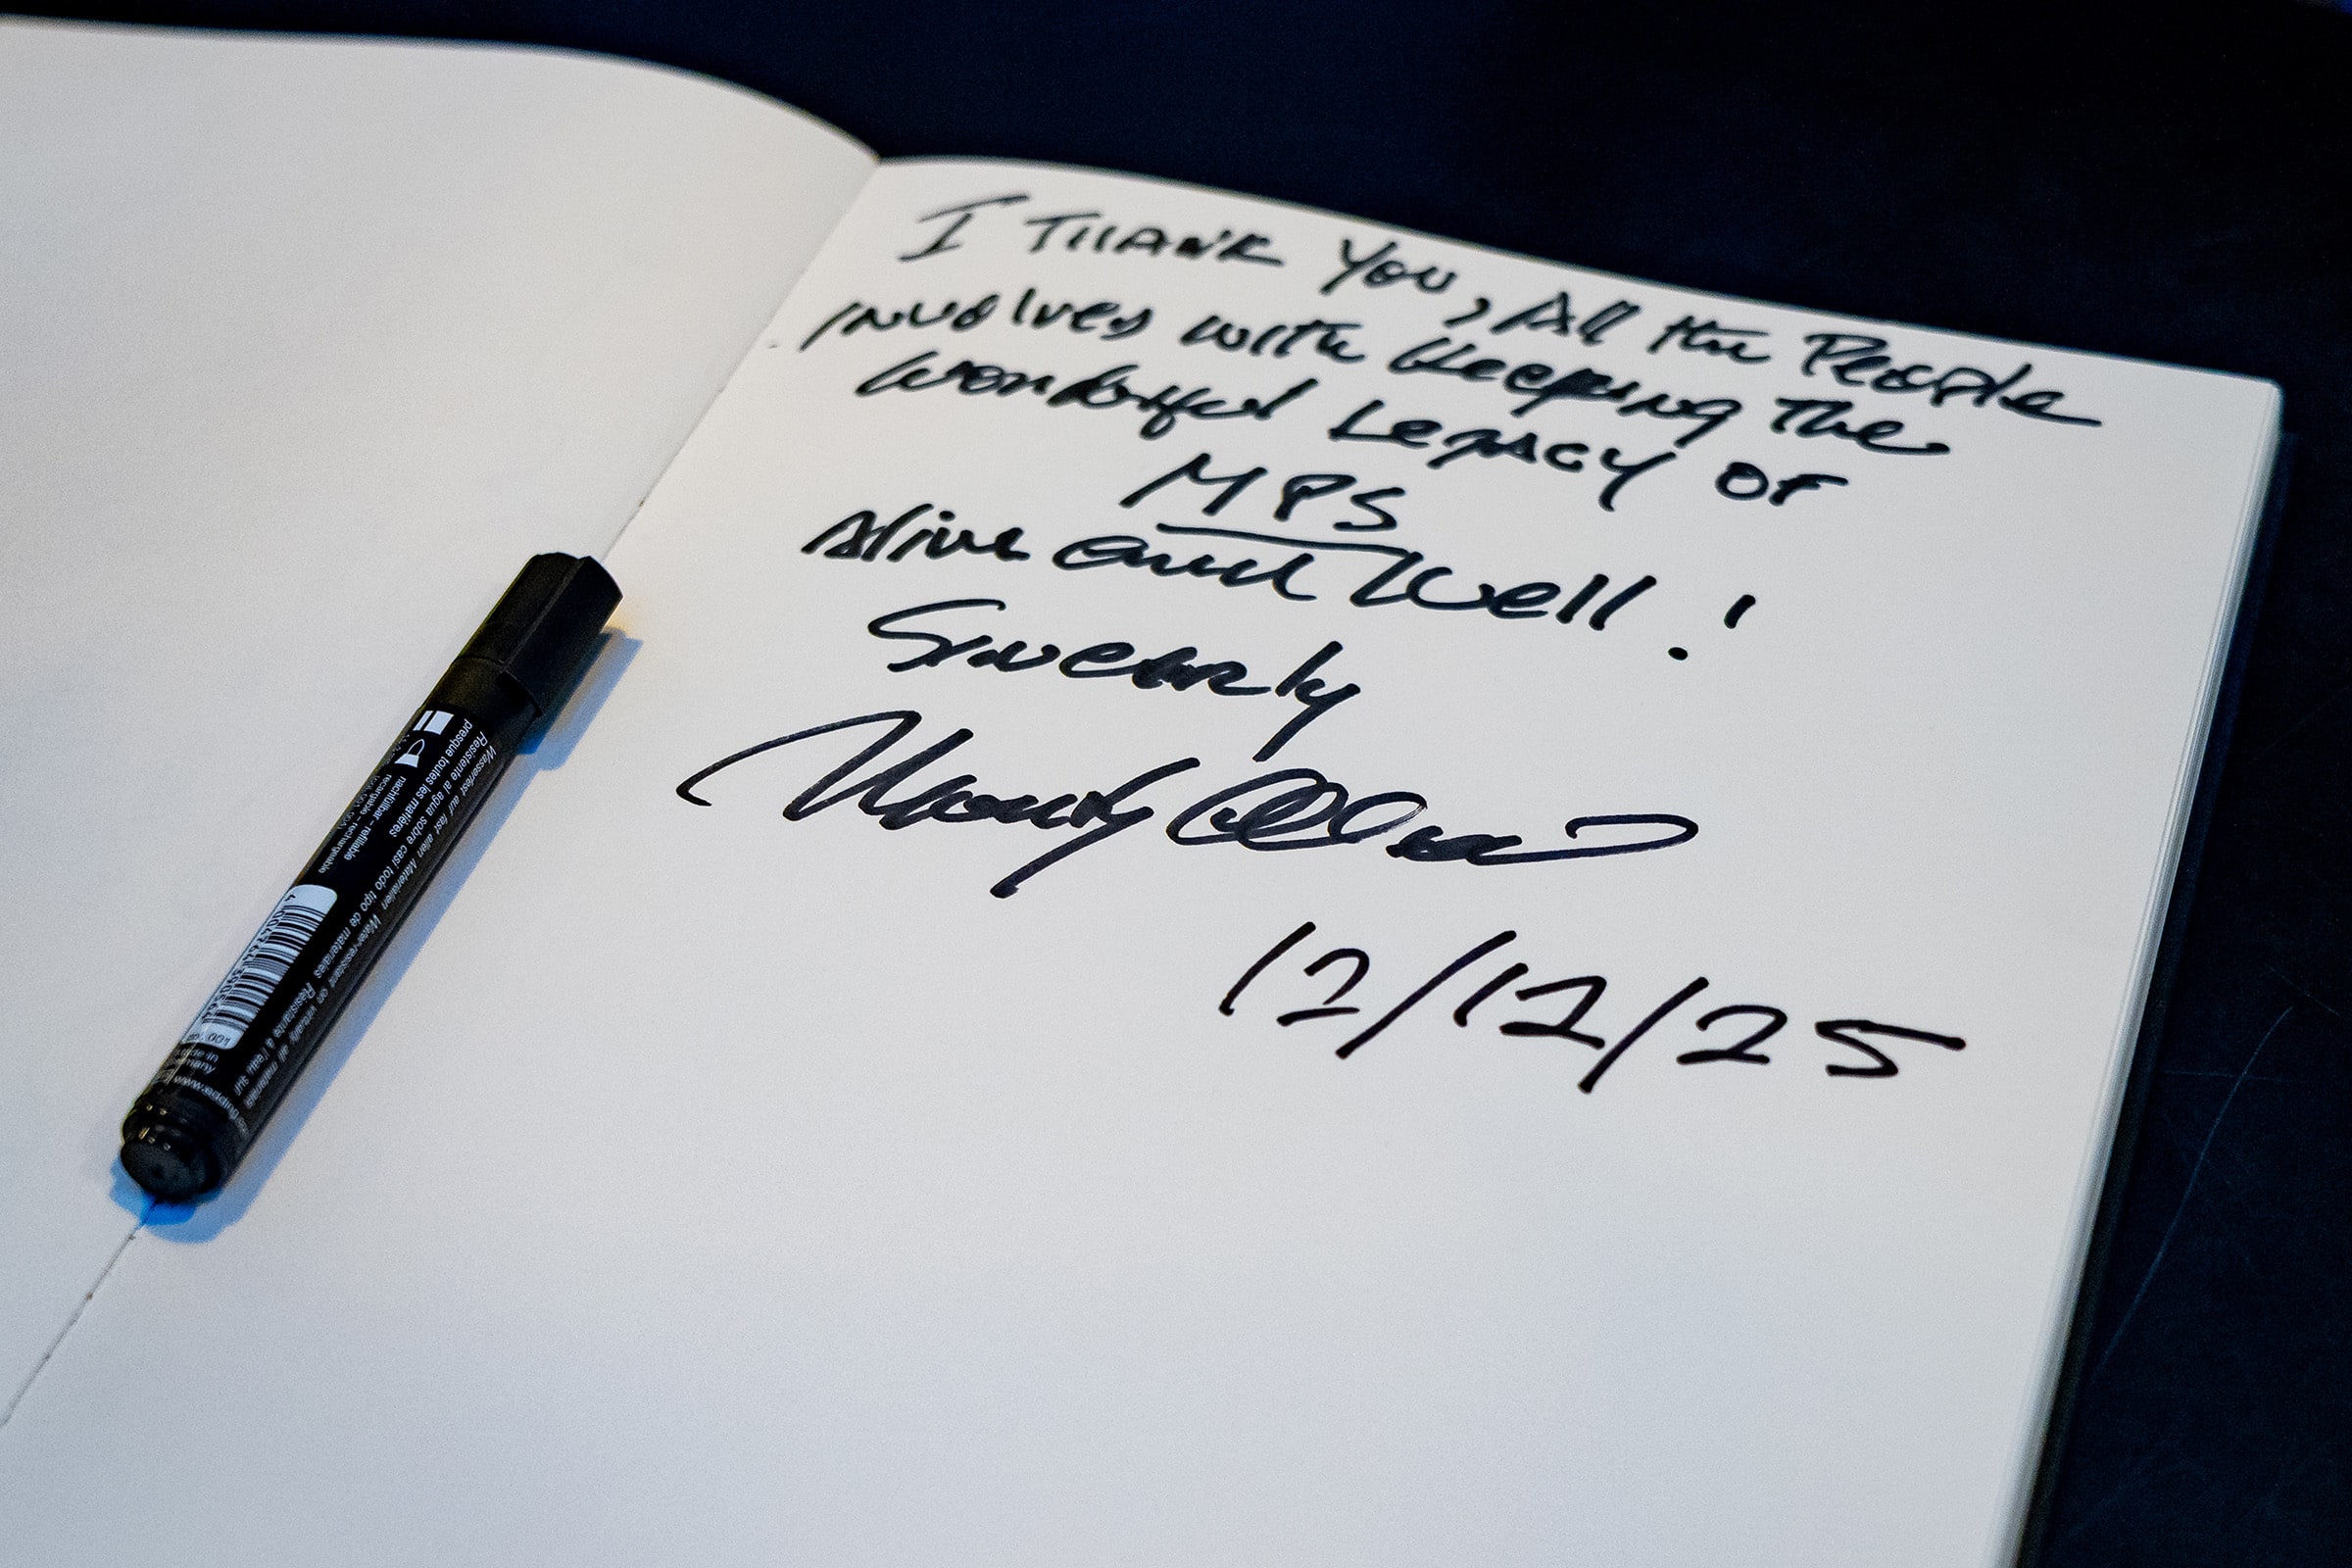 I THANK You, All the People
involves with keeping the
wonderful Legacy of
MPS
Alive and Well!
Sincerly
12/12/25
presque toutes les matières
Resistente al agua sobre casi todo tipo de materiales
Wasserfest auf fast allen Materialien Water-resistant on virtually all materials
nachfüllbar – refillable
recargable – rechargeable
Résistante à l'eau sur